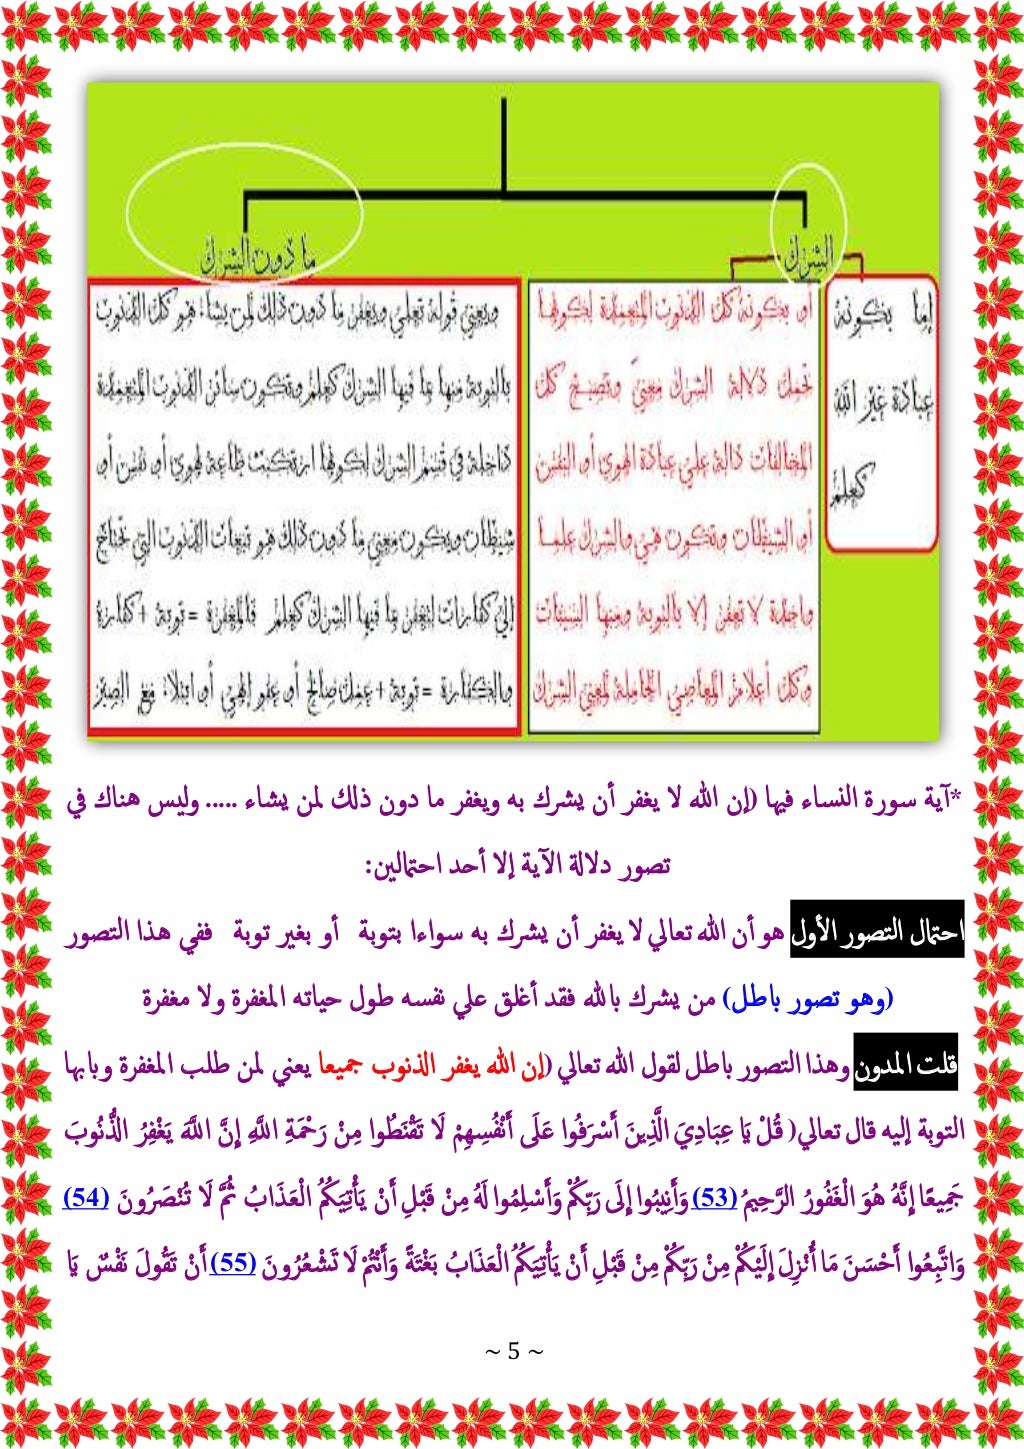 الشرك
ما دون الشرك
إما بكونه
عبادة غير الله
كعلم
أو بكونه كل الذنوب المتعمدة لكونها
تحمل دلالة الشرك معنيً وتصبح كل
المخالفات دالة علي عبادة الهوي أو النفس
أو الشيطان وتكون هي والشرك علما
واحدة لا تغفر إلا بالتوبة ومنها السيئات
وكل أعلام المعاصي الحاملة لمعني الشرك
ويعني قوله تعلي ويغفر ما دون ذلك لمن يشاء: هو كل الذنوب
بالتوبة منها بما فيها الشرك كعلم وتكون سائر الذنوب المتعمدة
داخلة في قسم الشرك لكونها ارتكبت طاعة لهوي أو نفس أو
شيطان ويكون معني ما دون ذلك هو تبعات الذنوب التي تحتاج
إلي كفارات لتغفر بما فيها الشرك كعلم فالمغفرة = توبة + كفارة
والكفارة = توبة + عمل صالح أو عفو إلهي أو ابتلاء مع الصبر
*آية سورة النساء فيها (إن الله لا يغفر أن يشرك به ويغفر ما دون ذلك لمن يشاء ..... وليس هناك في
تصور دلالة الآية إلا أحد احتمالين:
احتمال التصور الأول هو أن الله تعالي لا يغفر أن يشرك به سواءا بتوبة أو بغير توبة ففي هذا التصور
(وهو تصور باطل) من يشرك بالله فقد أغلق علي نفسه طول حياته المغفرة ولا مغفرة
قلت المدون وهذا التصور باطل لقول الله تعالي (إن الله يغفر الذنوب جميعا يعني لمن طلب المغفرة وبابها
التوبة إليه قال تعالي( قُلْ يَا عِبَادِيَ الَّذِينَ أَسْرَفُوا عَلَى أَنْفُسِهِمْ لَا تَقْنَطُوا مِنْ رَحْمَةِ اللَّهِ إِنَّ اللَّهَ يَغْفِرُ الذُّنُوبَ
جَمِيعًا إِنَّهُ هُوَ الْغَفُورُ الرَّحِيمُ (53) وَأَنِيبُوا إِلَى رَبِّكُمْ وَأَسْلِمُوا لَهُ مِنْ قَبْلِ أَنْ يَأْتِيَكُمُ الْعَذَابُ ثُمَّ لَا تُنْصَرُونَ (54)
وَاتَّبِعُوا أَحْسَنَ مَا أُنْزِلَ إِلَيْكُمْ مِنْ رَبِّكُمْ مِنْ قَبْلِ أَنْ يَأْتِيَكُمُ الْعَذَابُ بَغْتَةً وَأَنْتُمْ لَا تَشْعُرُونَ (55) أَنْ تَقُولَ نَفْسٌ يَا
~ 5 ~